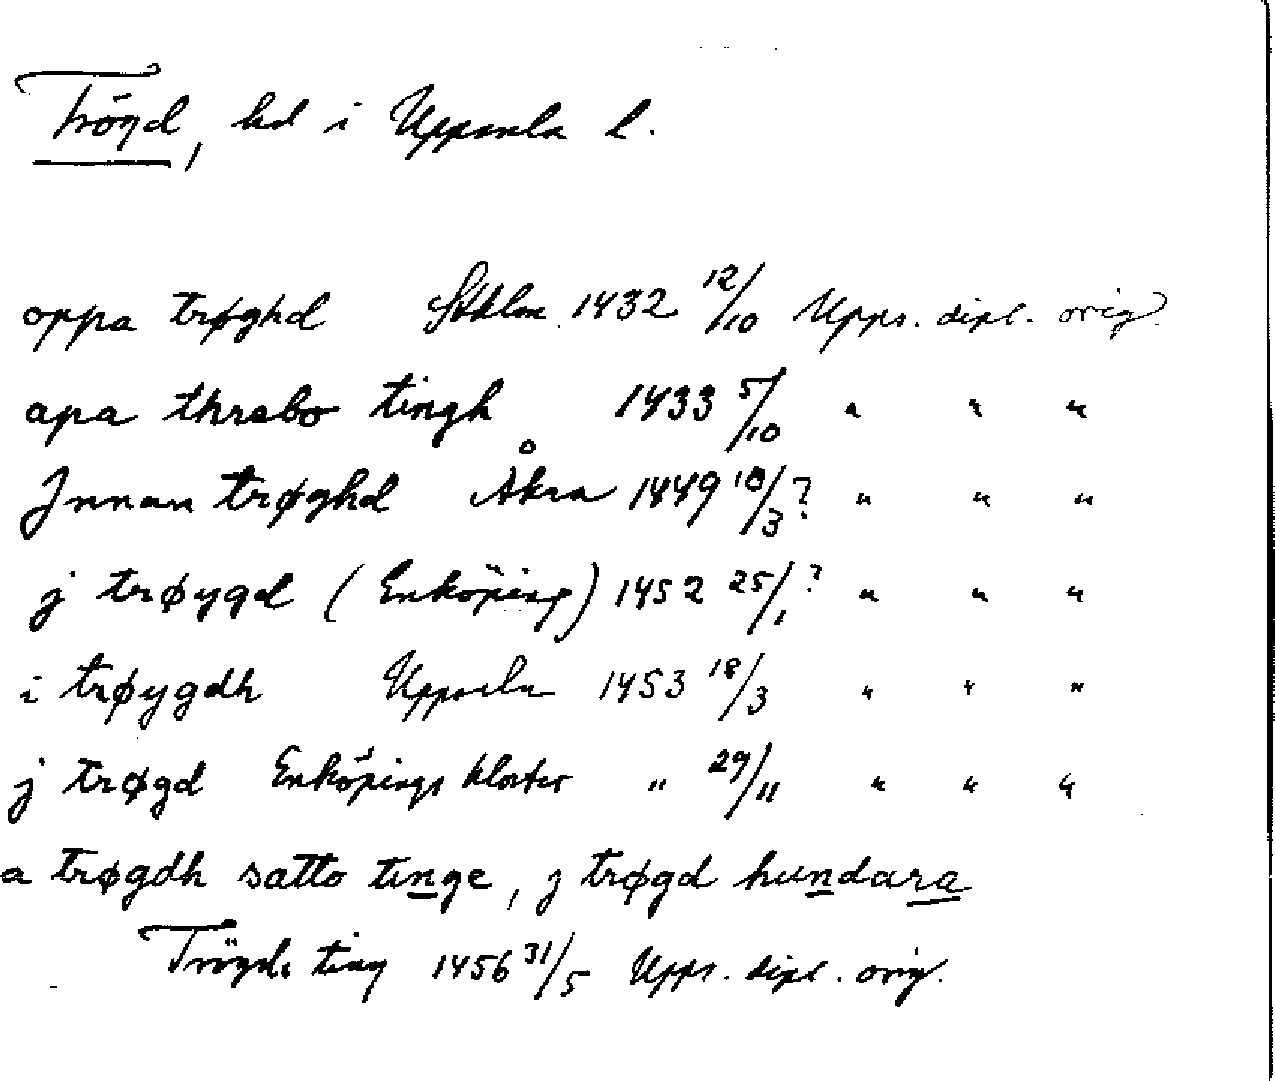 Trögd, hd i Uppsala l.
oppa trøghd Sthlm 1432 12/10 Upps. dipl. orig.
apa thrøbo tingh 1433 5/10 " " "
Jnnan trøghd Åkra 1449 10/3? " " "
j trøygd (Enköping) 1452 25/1? " " "
i trøygdh Uppsala 1453 18/3 " " "
j trøgd Enköpings kloster " 29/11 " " "
a trøgdh satto tinge, j trøgd hundara
Trögds ting 1456 31/5 Upps. dipl. orig.